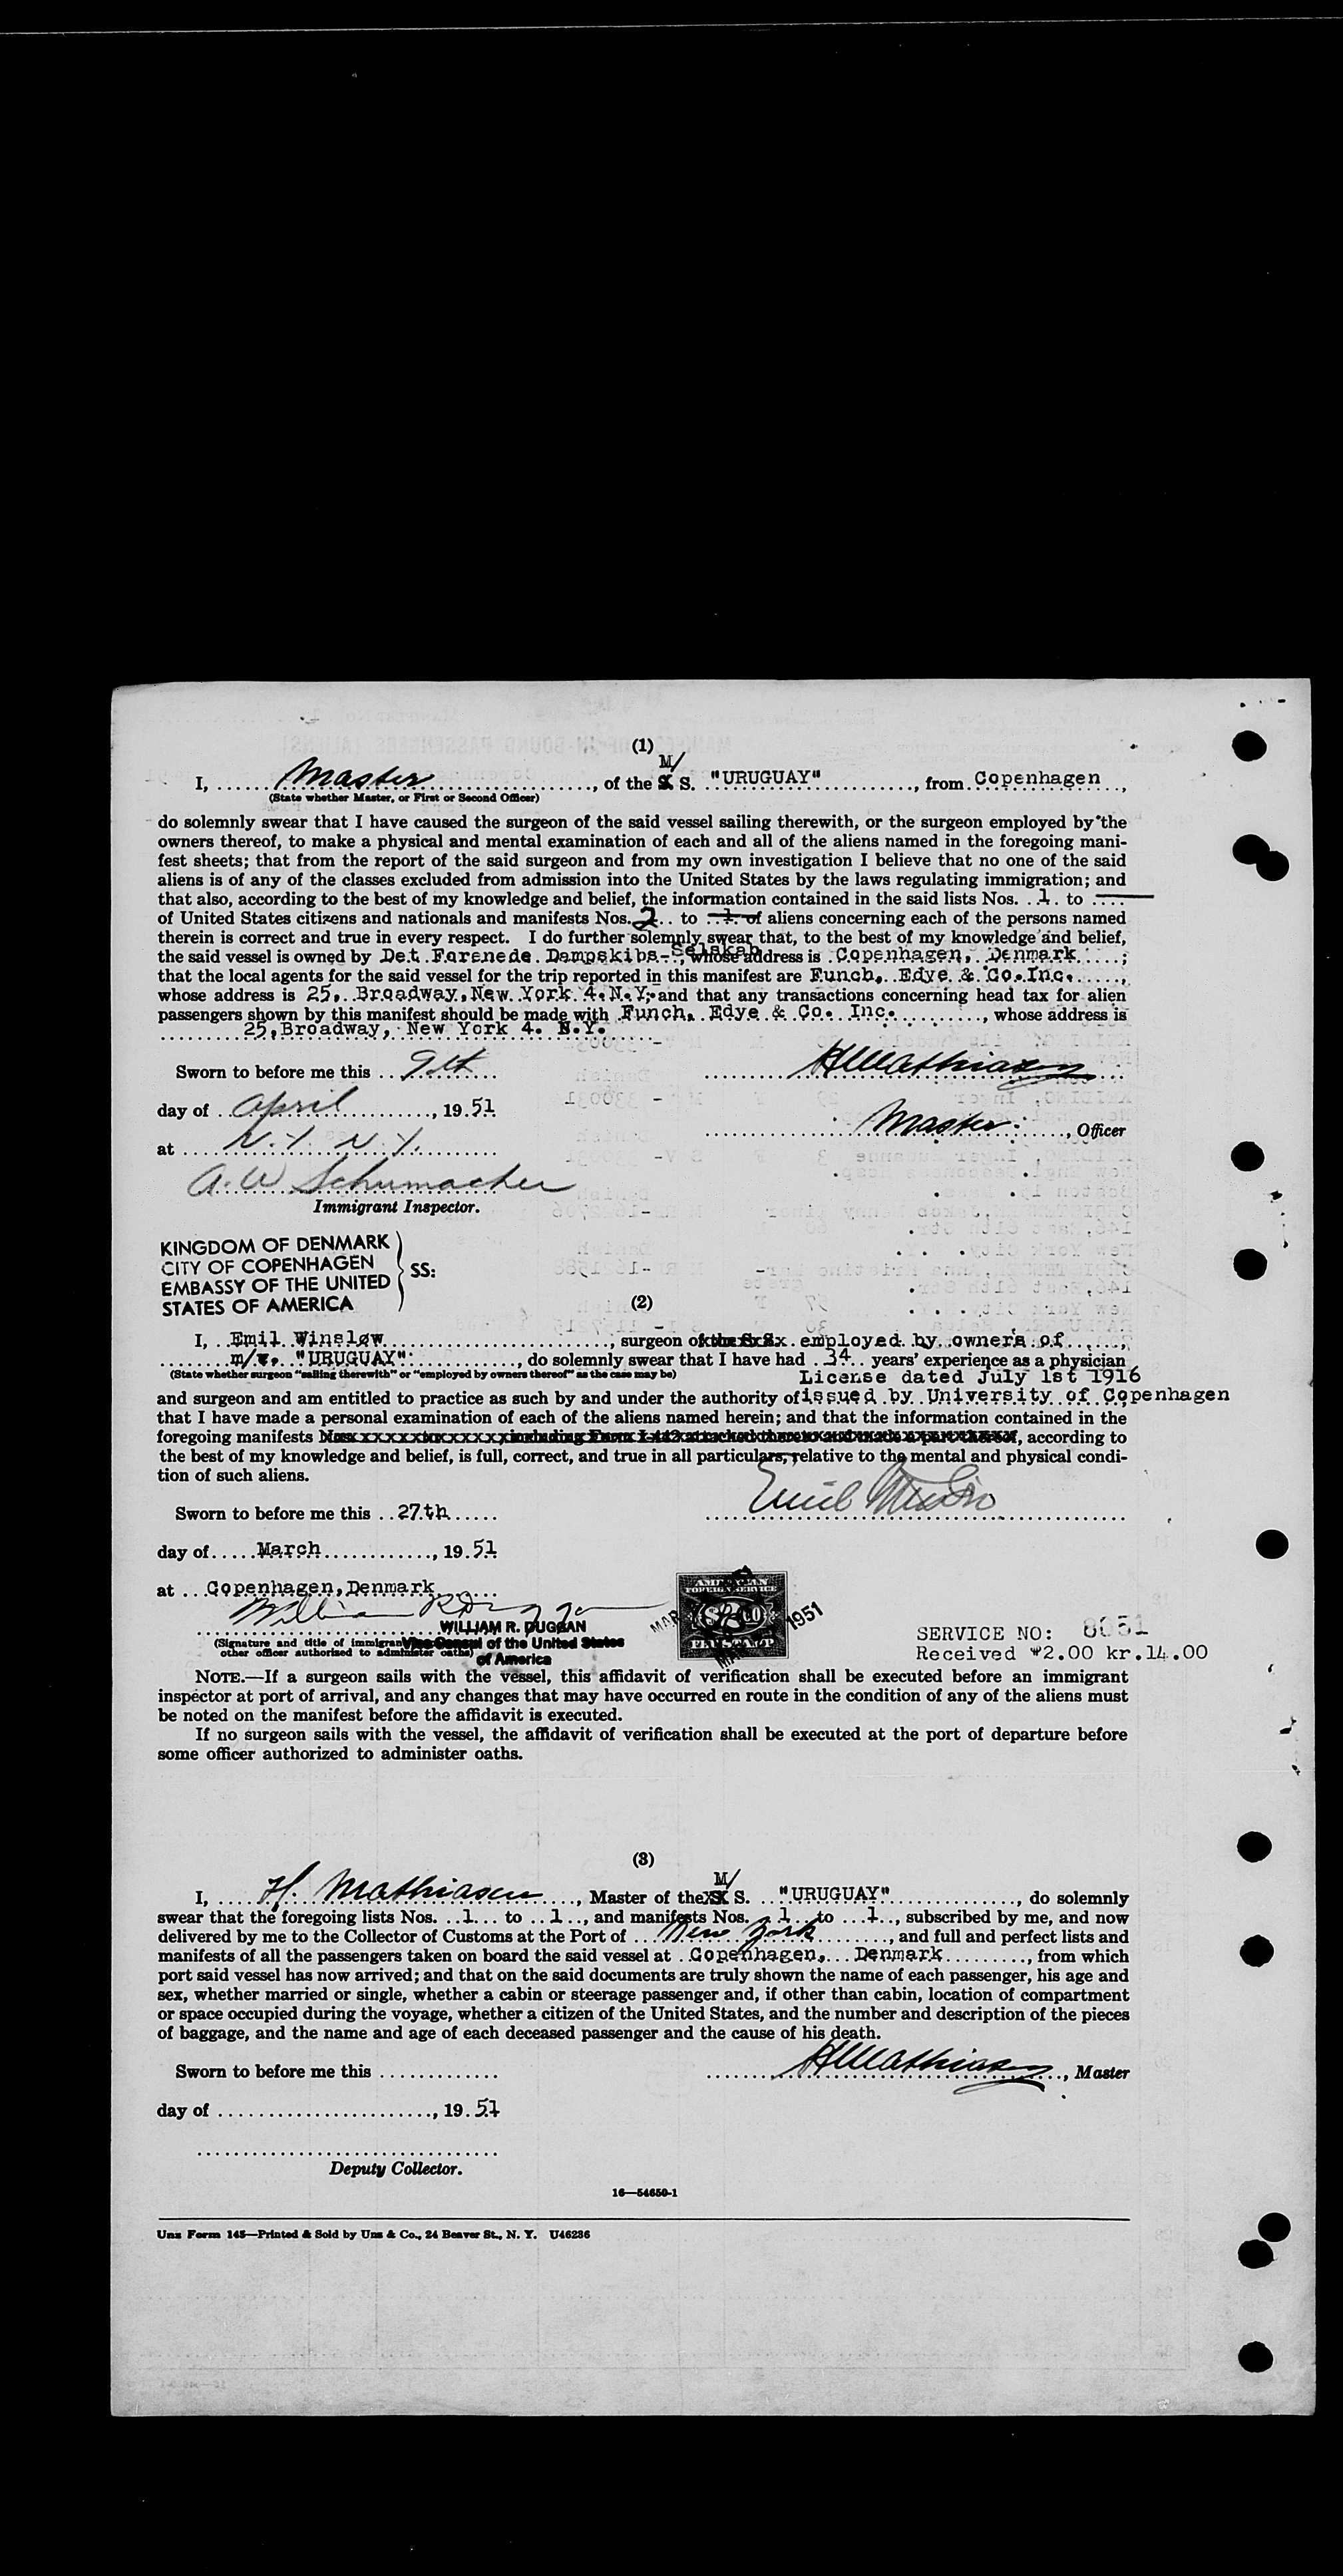 (1)
M/
I, Master, of the S. S. "URUGUAY", from Copenhagen,
(State whether Master, or First or Second Officer)
do solemnly swear that I have caused the surgeon of the said vessel sailing therewith, or the surgeon employed by the
owners thereof, to make a physical and mental examination of each and all of the aliens named in the foregoing mani-
fest sheets; that from the report of the said surgeon and from my own investigation I believe that no one of the said
aliens is of any of the classes excluded from admission into the United States by the laws regulating immigration; and
that also, according to the best of my knowledge and belief, the information contained in the said lists Nos. 1. to ....
of United States citizens and nationals and manifests Nos. 2 to 1. of aliens concerning each of the persons named
therein is correct and true in every respect. I do further solemnly swear that, to the best of my knowledge and belief,
the said vessel is owned by Det Forenede Dampskibs-Selskab, whose address is Copenhagen, Denmark;
that the local agents for the said vessel for the trip reported in this manifest are Funch, Edye & Co. Inc.,
whose address is 25, Broadway, New York 4. N.Y. and that any transactions concerning head tax for alien
passengers shown by this manifest should be made with Funch, Edye & Co. Inc., whose address is
25, Broadway, New York 4. N.Y.
Sworn to before me this 9th HMathiasen
day of April, 1951
Master, Officer
at N.Y. N.Y.
A. W Schumacher
Immigrant Inspector.
KINGDOM OF DENMARK
CITY OF COPENHAGEN
EMBASSY OF THE UNITED
STATES OF AMERICA
SS:
(2)
I, Emil Winsløw, surgeon of employed by owners of
m/v. "URUGUAY", do solemnly swear that I have had 34 years' experience as a physician
(State whether surgeon "sailing therewith" or "employed by owners thereof" as the case may be)
License dated July 1st 1916
and surgeon and am entitled to practice as such by and under the authority of issued by University of Copenhagen
that I have made a personal examination of each of the aliens named herein; and that the information contained in the
foregoing manifests Nos. including Form I-442 attached thereto and made a part thereof, according to
the best of my knowledge and belief, is full, correct, and true in all particulars, relative to the mental and physical condi-
tion of such aliens.
Sworn to before me this 27th Emil Winsløw
day of March, 1951
at Copenhagen, Denmark
William R Duggan
WILLIAM R. DUGGAN
(Signature and title of immigrant
other officer authorized to administer oaths)
Vice Consul of the United States
of America
AMERICAN
FOREIGN SERVICE
FEE STAMP
MAR 1951
SERVICE NO: 8051
Received $2.00 kr.14.00
NOTE.—If a surgeon sails with the vessel, this affidavit of verification shall be executed before an immigrant
inspector at port of arrival, and any changes that may have occurred en route in the condition of any of the aliens must
be noted on the manifest before the affidavit is executed.
If no surgeon sails with the vessel, the affidavit of verification shall be executed at the port of departure before
some officer authorized to administer oaths.
(3)
M/
I, H. Mathiasen, Master of the S. S. "URUGUAY", do solemnly
swear that the foregoing lists Nos. 1 to 1, and manifests Nos. 1 to 1, subscribed by me, and now
delivered by me to the Collector of Customs at the Port of New York, and full and perfect lists and
manifests of all the passengers taken on board the said vessel at Copenhagen, Denmark, from which
port said vessel has now arrived; and that on the said documents are truly shown the name of each passenger, his age and
sex, whether married or single, whether a cabin or steerage passenger and, if other than cabin, location of compartment
or space occupied during the voyage, whether a citizen of the United States, and the number and description of the pieces
of baggage, and the name and age of each deceased passenger and the cause of his death.
Sworn to before me this HMathiasen, Master
day of, 1951
Deputy Collector.
16—54650-1
Unz Form 145—Printed & Sold by Unz & Co., 24 Beaver St., N. Y. U46236